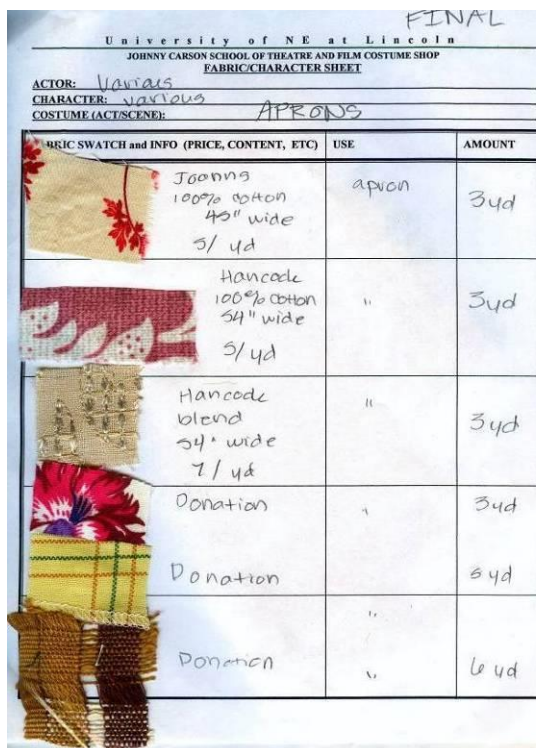 FINAL
University of NE at Lincoln
JOHNNY CARSON SCHOOL OF THEATRE AND FILM COSTUME SHOP
FABRIC/CHARACTER SHEET
ACTOR: Various
CHARACTER: various
COSTUME (ACT/SCENE): APRONS
BRIC SWATCH and INFO (PRICE, CONTENT, ETC) USE AMOUNT
Joanns apron 3yd
100% cotton
45" wide
5/ yd
Hancock " 3yd
100% cotton
54" wide
5/yd
Hancock " 3yd
blend
54" wide
7/yd
Donation " 3yd
Donation " 5yd
Donation " 6yd